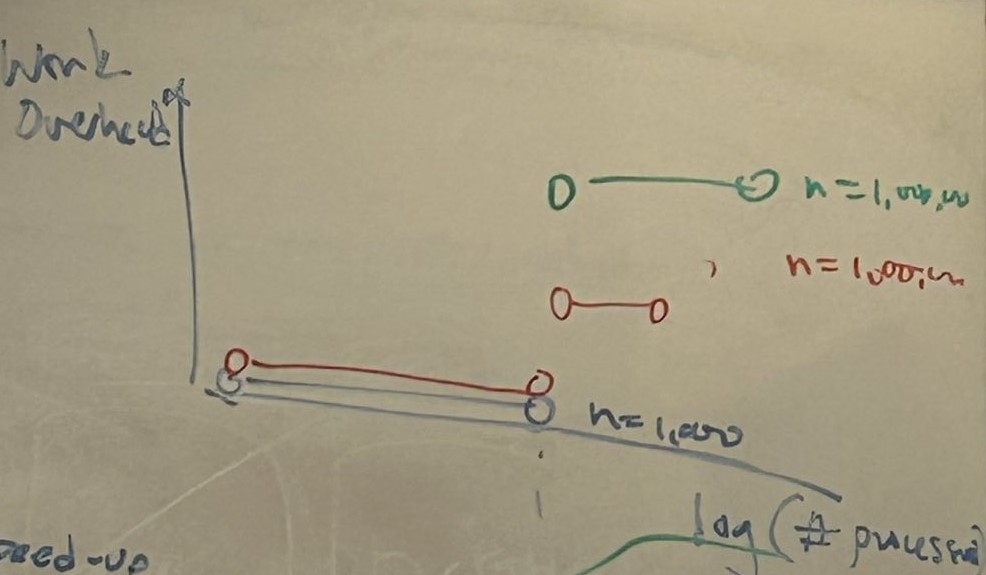 Work
Overhead
n = 1,000,000
n = 1,000,000
n = 1,000
log (# processors)
eed-up